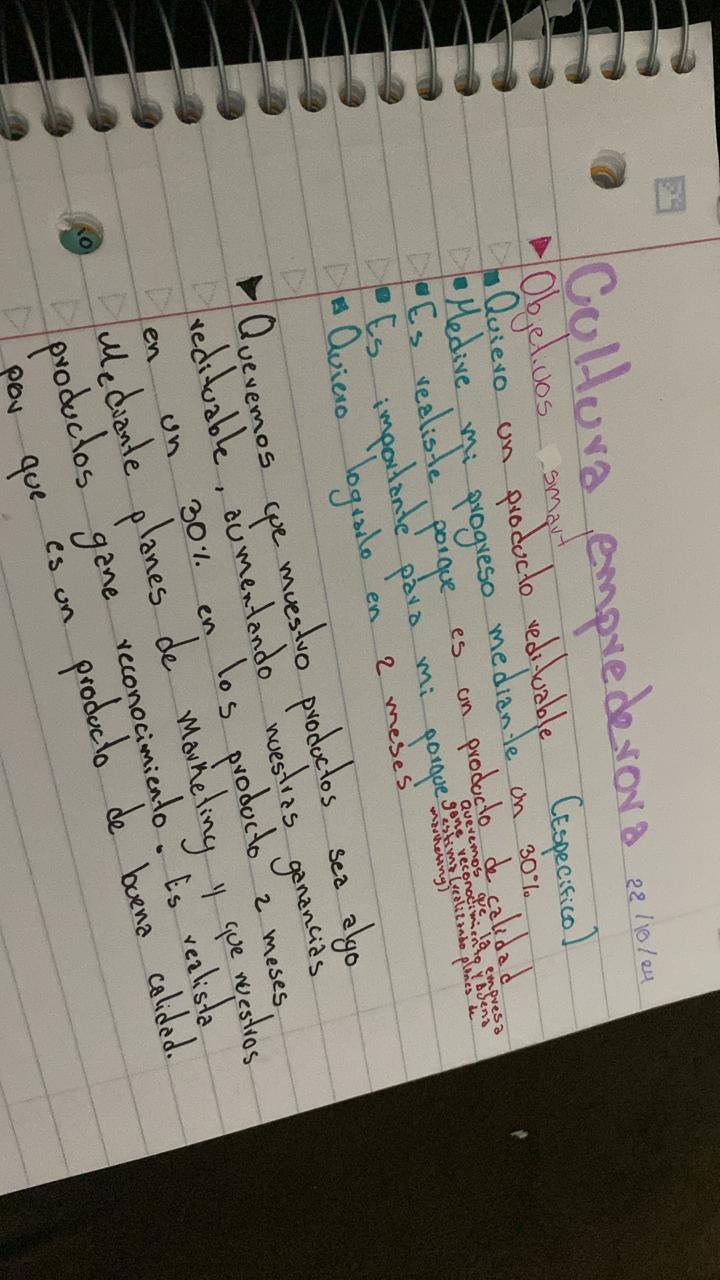 Cultura emprederora 22/10/24
Objetivos smart
Quiero un producto redituable [Especifico]
Medire mi progreso mediante un 30%
Es realiste porque es un producto de calidad
Es importante para mi porque queremos que la empresa
gane reconocimiento y buena
estima (realizando planes de
marketing)
Quiero lograrlo en 2 meses
Queremos que nuestro productos sea algo
redituable, aumentando nuestras ganancias
en un 30% en los producto 2 meses
Mediante planes de Marketing y que nuestros
productos gane reconocimiento. Es realista
por que es un producto de buena calidad.